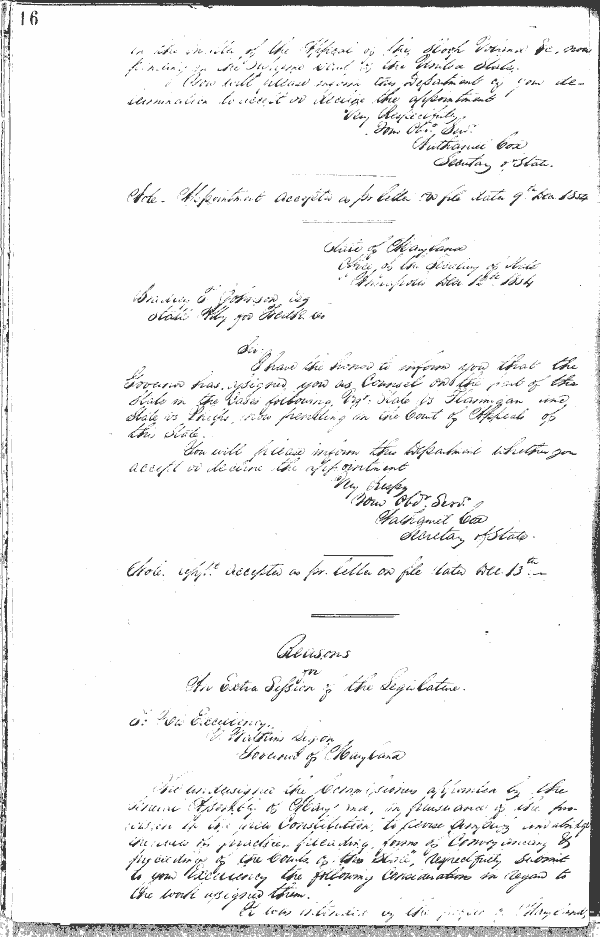 16
in the matter of the Appeal of the Stock &c, now
pending in the Supreme Court of the United States.
You will please inform this Department of your de-
termination to accept or decline the appointment
Very Respectfully
Your Obt. Servt.
Nathaniel Cox
Secretary of State.
Note. Appointment accepted as per letter on file dated 9th Dec. 1854
State of Maryland
Office of the Secretary of State
Annapolis Dec 12th 1854
Bradley T. Johnson, Esq
State Atty for Fredk. Co
Sir,
I have the honor to inform you that the
Governor has assigned you as Counsel on the part of the
State in the Cases following, Viz: State vs Flannigan and
State vs now pending in the Court of Appeals of
this State.
You will please inform this Department whether you
accept or decline the appointment
Very Respy
Your Obdt. Servt.
Nathaniel Cox
Secretary of State.
Note. appt. accepted as per letter on file dated Dec. 13th
Reasons
for
An Extra Session of the Legislature.
To His Excellency,
T. Watkins Ligon,
Governor of Maryland
The undersigned the Commissioners appointed by the
General Assembly of Maryland, in pursuance of the pro-
vision in the new Constitution, "to revise simplify and abridge
the rules of practice, pleading, forms of Conveyancing &
proceedings of the Courts of this State", respectfully submit
to your Excellency the following Consideration in regard to
the work assigned them.
It was intended by the people of Maryland,